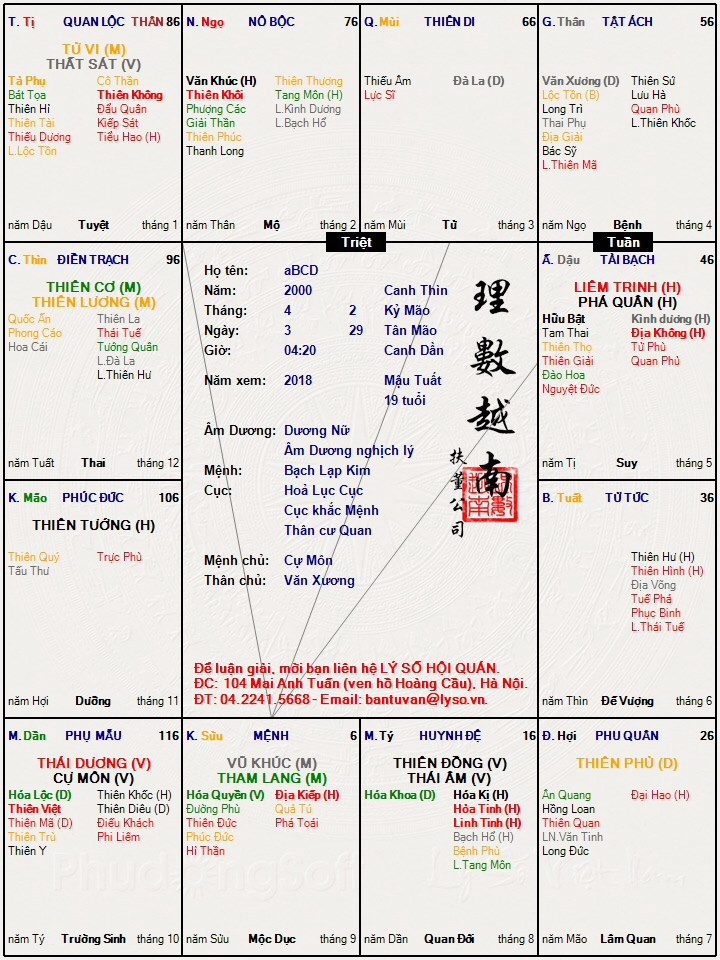 T. Tị QUAN LỘC THÂN 86
TỬ VI (M)
THẤT SÁT (V)
Tả Phụ Cô Thần
Bát Tọa Thiên Không
Thiên Hỉ Đẩu Quân
Thiên Tài Kiếp Sát
Thiếu Dương Tiểu Hao (H)
L.Lộc Tồn
năm Dậu Tuyệt tháng 1
N. Ngọ NÔ BỘC 76
Văn Khúc (H) Thiên Thương
Thiên Khôi Tang Môn (H)
Phượng Các L.Kình Dương
Giải Thần L.Bạch Hổ
Thiên Phúc
Thanh Long
năm Thân Mộ tháng 2
Q. Mùi THIÊN DI 66
Thiếu Âm Đà La (D)
Lực Sĩ
năm Mùi Tử tháng 3
G. Thân TẬT ÁCH 56
Văn Xương (D) Thiên Sứ
Lộc Tồn (B) Lưu Hà
Long Trì Quan Phù
Thai Phụ L.Thiên Khốc
Địa Giải
Bác Sỹ
L.Thiên Mã
năm Ngọ Bệnh tháng 4
Triệt
Tuần
C. Thìn ĐIỀN TRẠCH 96
THIÊN CƠ (M)
THIÊN LƯƠNG (M)
Quốc Ấn Thiên La
Phong Cáo Thái Tuế
Hoa Cái Tướng Quân
L.Đà La
L.Thiên Hư
năm Tuất Thai tháng 12
Họ tên: aBCD
Năm: 2000 Canh Thìn
Tháng: 4 2 Kỷ Mão
Ngày: 3 29 Tân Mão
Giờ: 04:20 Canh Dần
Năm xem: 2018 Mậu Tuất
19 tuổi
Âm Dương: Dương Nữ
Âm Dương nghịch lý
Mệnh: Bạch Lạp Kim
Cục: Hoả Lục Cục
Cục khắc Mệnh
Thân cư Quan
Mệnh chủ: Cự Môn
Thân chủ: Văn Xương
理數越南
扶董公司
Để luận giải, mời bạn liên hệ LÝ SỐ HỘI QUÁN.
ĐC: 104 Mai Anh Tuấn (ven hồ Hoàng Cầu), Hà Nội.
ĐT: 04.2241.5668 - Email: bantuvan@lyso.vn.
Ấ. Dậu TÀI BẠCH 46
LIÊM TRINH (H)
PHÁ QUÂN (H)
Hữu Bật Kình dương (H)
Tam Thai Địa Không (H)
Thiên Thọ Tử Phù
Thiên Giải Quan Phủ
Đào Hoa
Nguyệt Đức
năm Tị Suy tháng 5
K. Mão PHÚC ĐỨC 106
THIÊN TƯỚNG (H)
Thiên Quý Trực Phù
Tấu Thư
năm Hợi Dưỡng tháng 11
B. Tuất TỬ TỨC 36
Thiên Hư (H)
Thiên Hình (H)
Địa Võng
Tuế Phá
Phục Binh
L.Thái Tuế
năm Thìn Đế Vượng tháng 6
M. Dần PHỤ MẪU 116
THÁI DƯƠNG (V)
CỰ MÔN (V)
Hóa Lộc (D) Thiên Khốc (H)
Thiên Việt Thiên Diêu (D)
Thiên Mã (D) Điếu Khách
Thiên Trù Phi Liêm
Thiên Y
năm Tý Trường Sinh tháng 10
K. Sửu MỆNH 6
VŨ KHÚC (M)
THAM LANG (M)
Hóa Quyền (V) Địa Kiếp (H)
Đường Phù Quả Tú
Thiên Đức Phá Toái
Phúc Đức
Hỉ Thần
năm Sửu Mộc Dục tháng 9
M. Tý HUYNH ĐỆ 16
THIÊN ĐỒNG (V)
THÁI ÂM (V)
Hóa Khoa (D) Hóa Kị (H)
Hỏa Tinh (H)
Linh Tinh (H)
Bạch Hổ (H)
Bệnh Phù
L.Tang Môn
năm Dần Quan Đới tháng 8
Đ. Hợi PHU QUÂN 26
THIÊN PHỦ (D)
Ân Quang Đại Hao (H)
Hồng Loan
Thiên Quan
LN.Văn Tinh
Long Đức
năm Mão Lâm Quan tháng 7